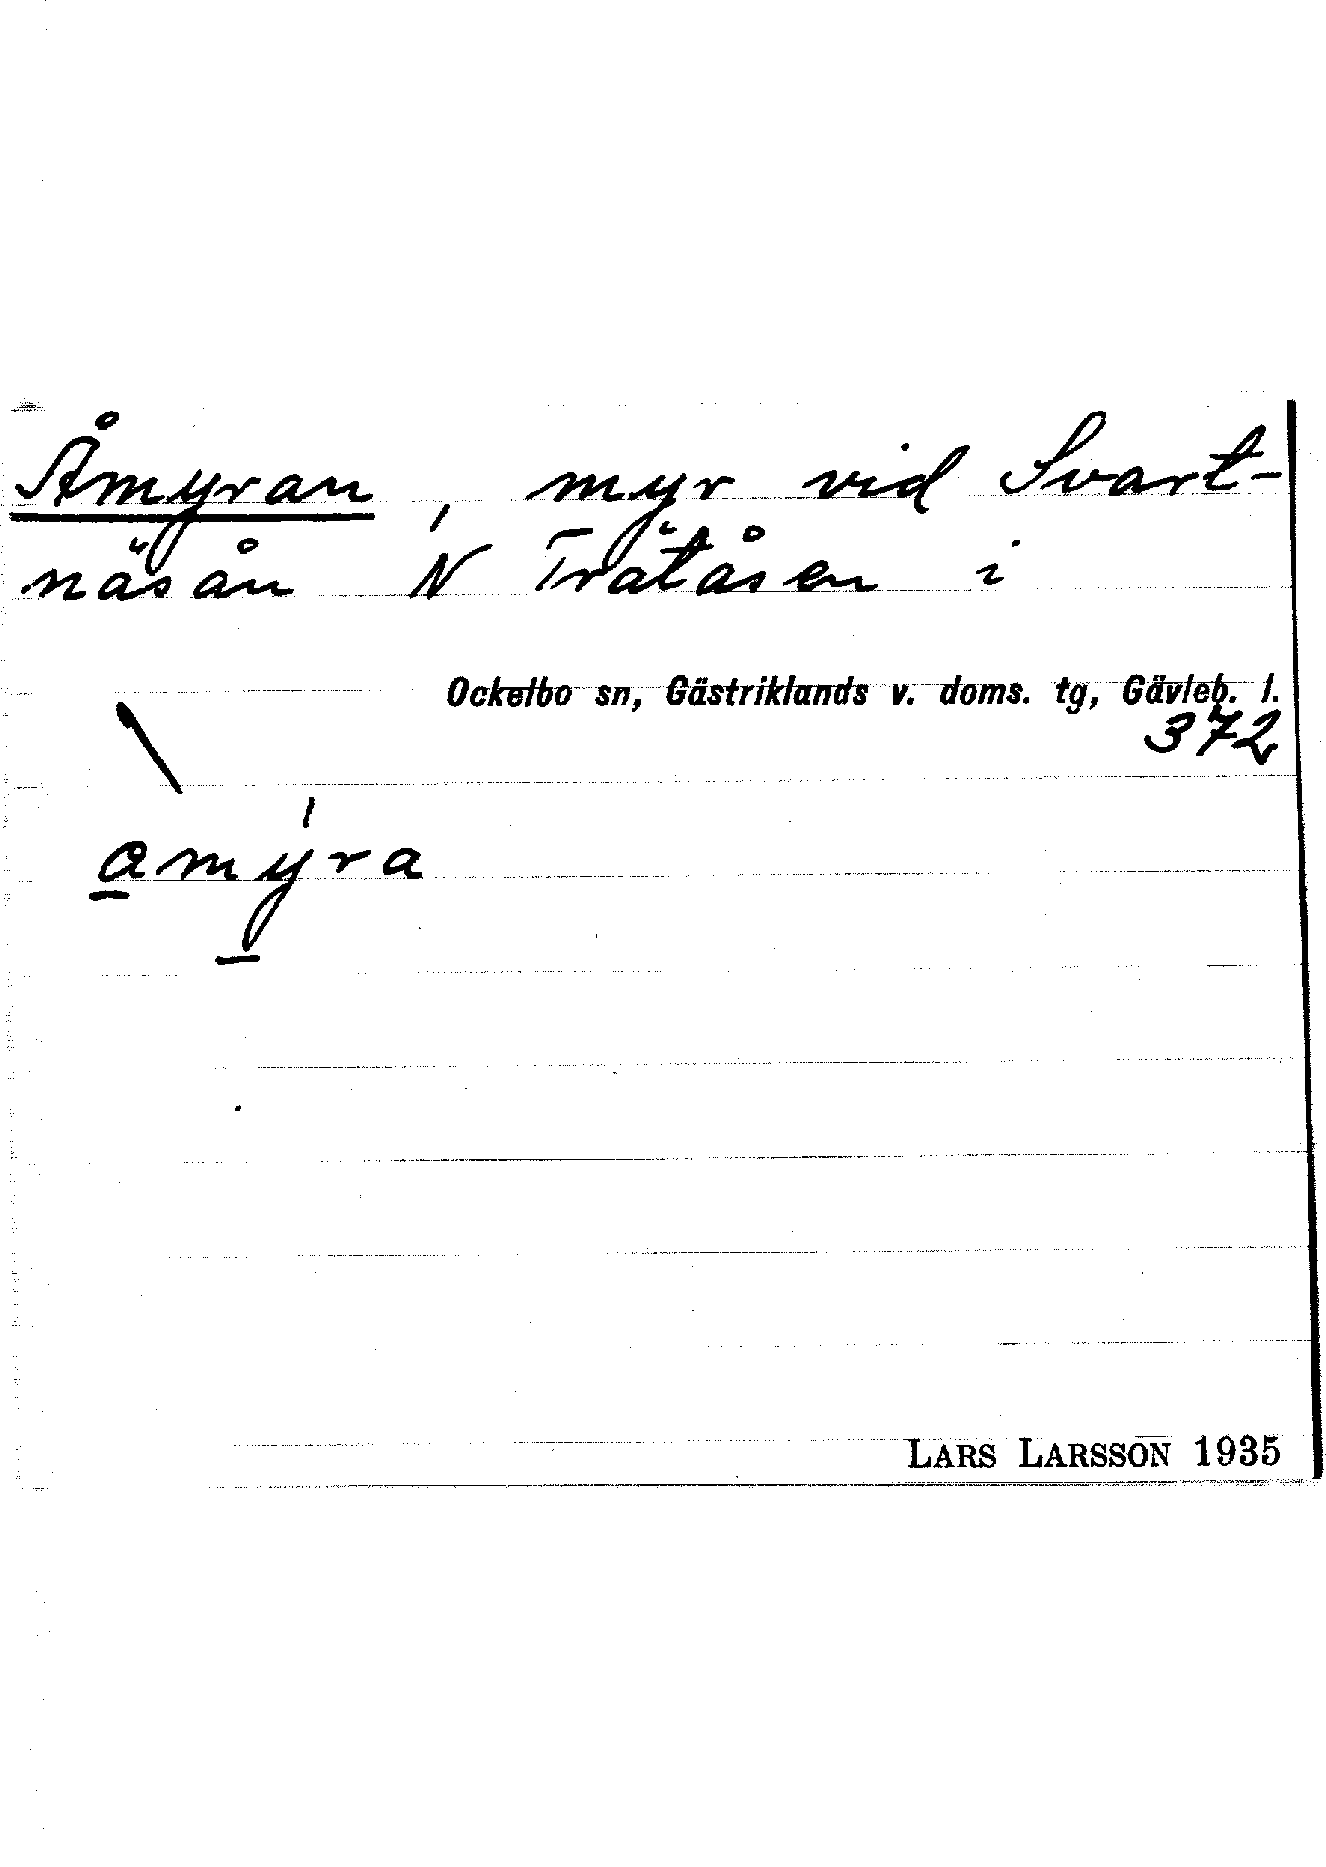 Åmyran, myr vid Svart-
näsån N Trätåsen i
Ockelbo sn, Gästriklands v. doms. tg, Gävleb. l.
372
amyra
LARS LARSSON 1935